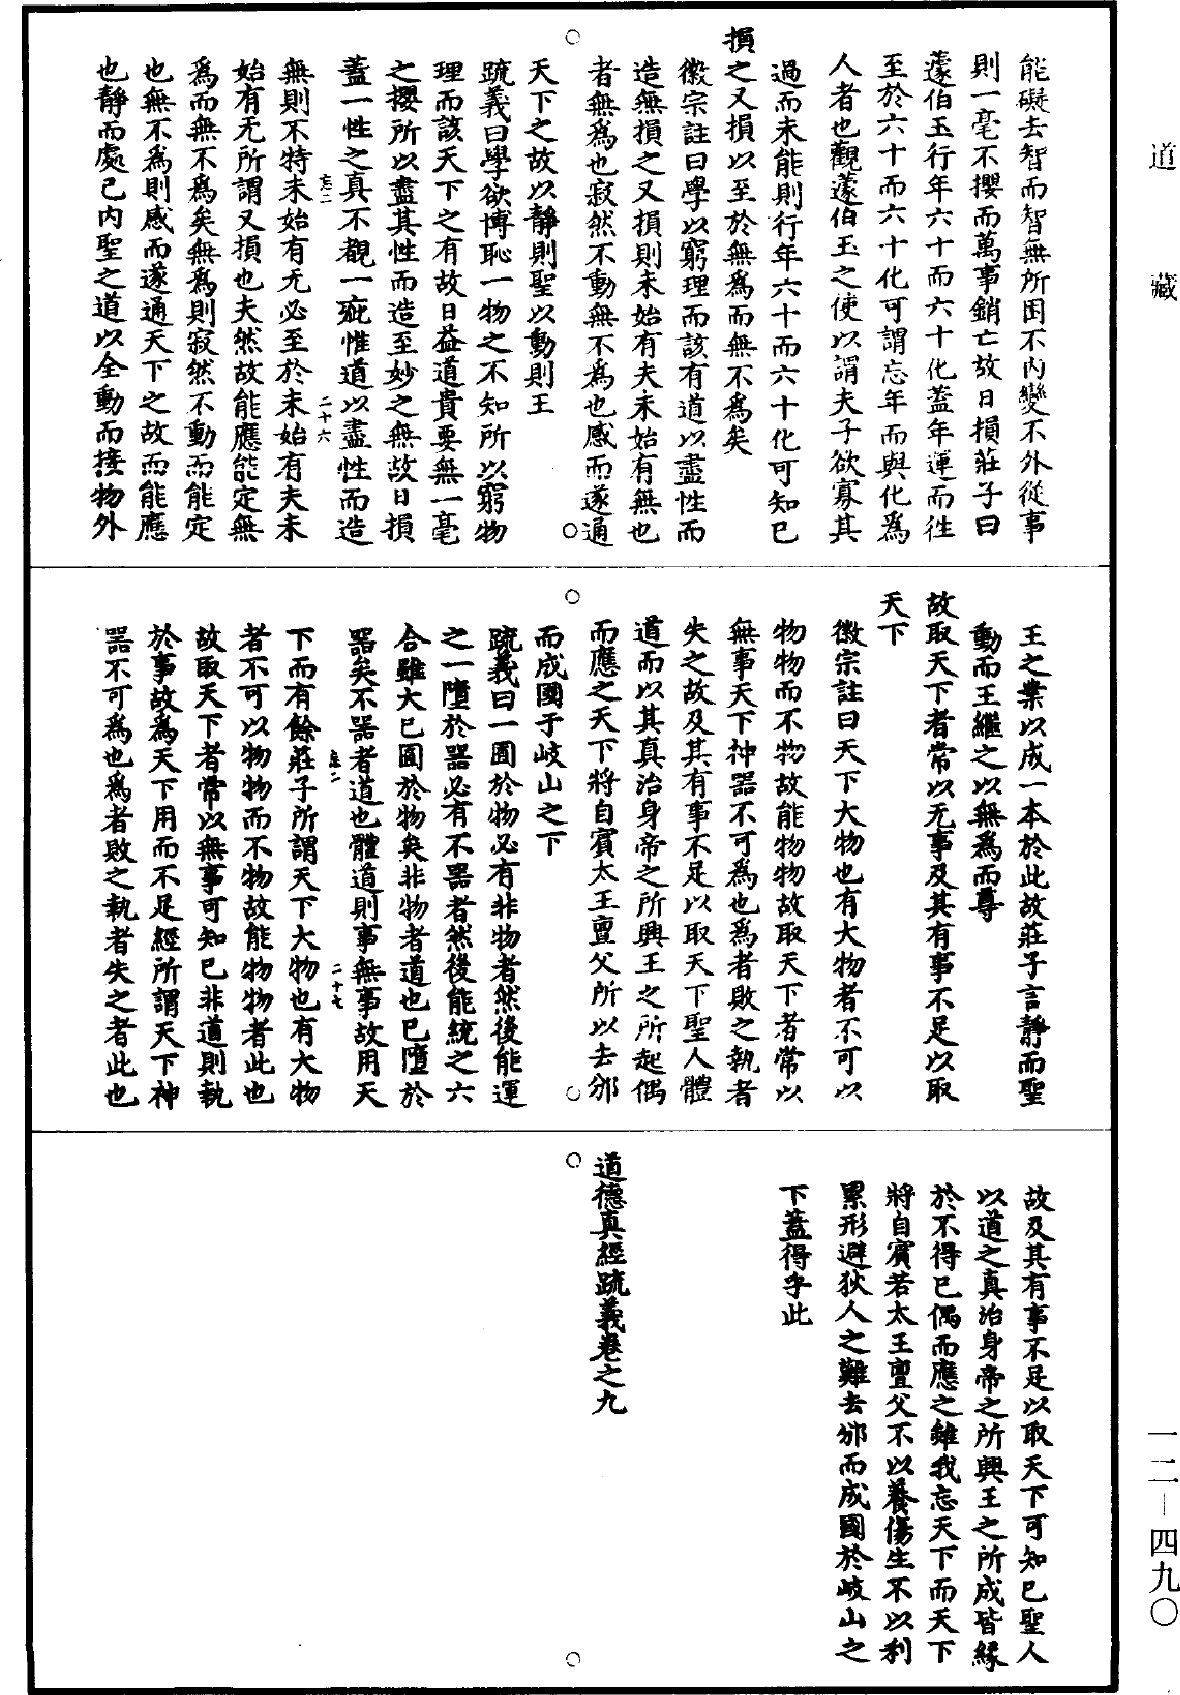 道藏
能礙去智而智無所困不內變不外從事
則一毫不攖而萬事銷亡故日損莊子曰
蘧伯玉行年六十而六十化蓋年運而往
至於六十而六十化可謂忘年而與化爲
人者也觀蘧伯玉之使以謂夫子欲寡其
過而未能則行年六十而六十化可知已
損之又損以至於無爲而無不爲矣
徽宗註曰學以窮理而該有道以盡性而
造無損之又損則未始有夫未始有無也
者無爲也寂然不動無不爲也感而遂通
天下之故以靜則聖以動則王
疏義曰學欲博恥一物之不知所以窮物
理而該天下之有故日益道貴要無一毫
之攖所以盡其性而造至妙之無故日損
蓋一性之真不覩一疵惟道以盡性而造
二十六
無則不特未始有无必至於未始有夫未
始有无所謂又損也夫然故能應能定無
爲而無不爲矣無爲則寂然不動而能定
也無不爲則感而遂通天下之故而能應
也靜而處已內聖之道以全動而接物外
王之業以成一本於此故莊子言靜而聖
動而王繼之以無爲而尊
故取天下者常以无事及其有事不足以取
天下
徽宗註曰天下大物也有大物者不可以
物物而不物故能物物故取天下者常以
無事天下神器不可爲也爲者敗之執者
失之故及其有事不足以取天下聖人體
道而以其真治身帝之所興王之所起偶
而應之天下將自賓太王亶父所以去邠
而成國于岐山之下
疏義曰一囿於物必有非物者然後能運
之一墮於器必有不器者然後能統之六
合雖大已囿於物矣非物者道也已墮於
器矣不器者道也體道則事無事故用天
二十七
下而有餘莊子所謂天下大物也有大物
者不可以物物而不物故能物物者此也
故取天下者常以無事可知已非道則執
於事故爲天下用而不足經所謂天下神
器不可爲也爲者敗之執者失之者此也
故及其有事不足以取天下可知已聖人
以道之真治身帝之所興王之所成皆緣
於不得已偶而應之雖我忘天下而天下
將自賓若太王亶父不以養傷生不以利
累形避狄人之難去邠而成國於岐山之
下蓋得乎此
道德真經疏義卷之九
一二-四九〇